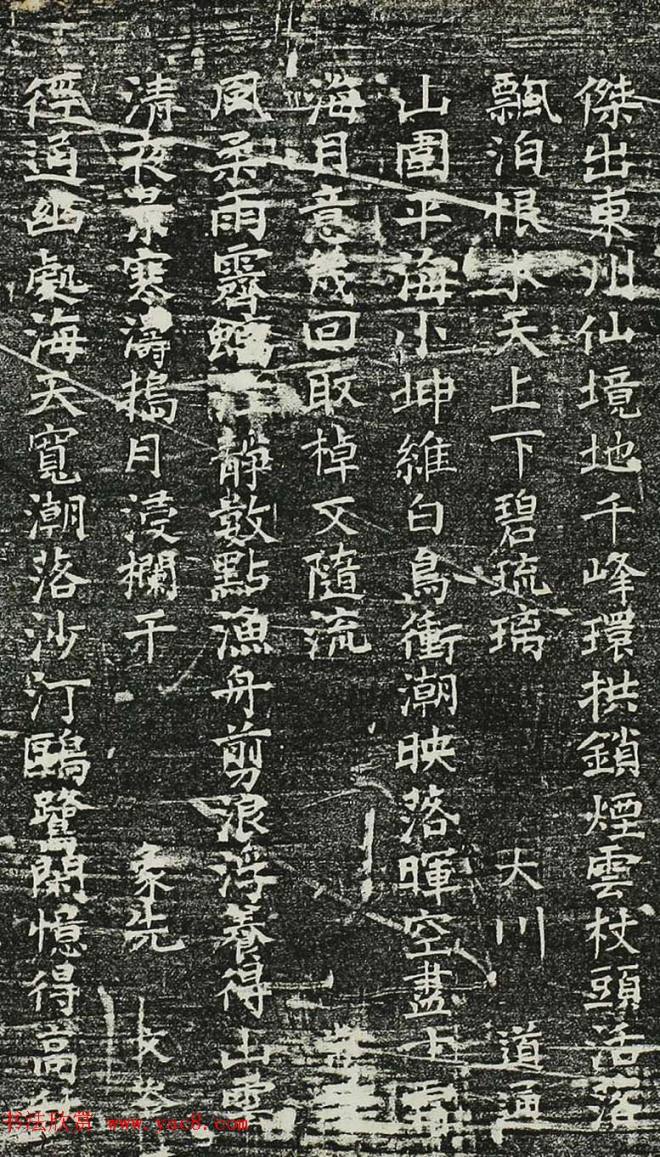 傑出東州仙境地千峰環拱鎖煙雲杖頭活落
飄泊水天上下碧琉璃 大川 道海
山圍平海小坤維白鳥衝潮映落暉空盡
海月意幾回取棹又隨流
風柔雨霽江靜數點漁舟剪浪浮養得山雲
清夜景寒濤搗月浸欄干
徑過幽處海天寬潮落沙汀鷗鷺閑憶得高
书法欣赏 www.yac8.com